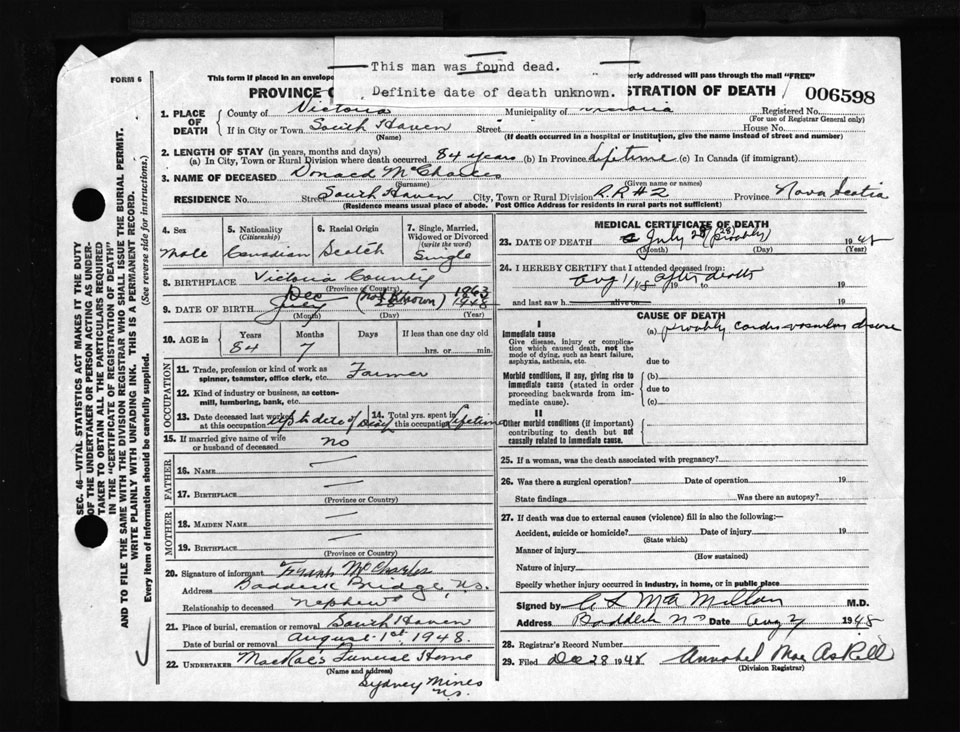 This man was found dead.
Definite date of death unknown.
FORM 6
This form if placed in an envelope
erly addressed will pass through the mail "FREE"
PROVINCE
STRATION OF DEATH
006598
1. PLACE OF DEATH
County of Victoria Municipality of Victoria Registered No.
(For use of Registrar General only)
If in City or Town South Haven Street House No.
(Name) (If death occurred in a hospital or institution, give the name instead of street and number)
2. LENGTH OF STAY (in years, months and days)
(a) In City, Town or Rural Division where death occurred 84 years (b) In Province Lifetime (c) In Canada (if immigrant)
3. NAME OF DECEASED Donald McCharles
(Surname) (Given name or names)
RESIDENCE No. Street South Haven City, Town or Rural Division R.R.#2 Province Nova Scotia
(Residence means usual place of abode. Post Office Address for residents in rural parts not sufficient)
4. Sex
Male
5. Nationality
(Citizenship)
Canadian
6. Racial Origin
Scotch
7. Single, Married,
Widowed or Divorced
(write the word)
Single
8. BIRTHPLACE Victoria County
(Province or Country)
9. DATE OF BIRTH Dec (not known) 1963
July 28 1948
(Month) (Day) (Year)
10. AGE in
Years Months Days If less than one day old
84 7 hrs. or min.
OCCUPATION
11. Trade, profession or kind of work as
spinner, teamster, office clerk, etc. Farmer
12. Kind of industry or business, as cotton-
mill, lumbering, bank, etc.
13. Date deceased last worked
at this occupation up to date of
14. Total yrs. spent in
this occupation Lifetime
15. If married give name of wife
or husband of deceased no
FATHER
16. NAME —
17. BIRTHPLACE —
(Province or Country)
MOTHER
18. MAIDEN NAME —
19. BIRTHPLACE —
(Province or Country)
20. Signature of informant Frank McCharles
Address Baddeck Bridge, N.S.
Relationship to deceased nephew
21. Place of burial, cremation or removal South Haven
Date of burial or removal August 1st 1948.
22. UNDERTAKER MacRae's Funeral Home
(Name and address)
Sydney Mines
N.S.
MEDICAL CERTIFICATE OF DEATH
23. DATE OF DEATH July 28 (28) (probably) 1948
(Month) (Day) (Year)
24. I HEREBY CERTIFY that I attended deceased from:
Aug 1/48 after death 19 to 19
and last saw h alive on 19
CAUSE OF DEATH
I
Immediate cause
Give disease, injury or complica-
tion which caused death, not the
mode of dying, such as heart failure,
asphyxia, asthenia, etc.
(a) probably cardio vascular disease
due to
Morbid conditions, if any, giving rise to
immediate cause (stated in order
proceeding backwards from im-
mediate cause).
(b)
due to
(c)
II
Other morbid conditions (if important)
contributing to death but not
causally related to immediate cause.
25. If a woman, was the death associated with pregnancy?
26. Was there a surgical operation? Date of operation 19
State findings Was there an autopsy?
27. If death was due to external causes (violence) fill in also the following:—
Accident, suicide or homicide? Date of injury 19
(State which)
Manner of injury
(How sustained)
Nature of injury
Specify whether injury occurred in industry, in home, or in public place
Signed by McMillan M.D.
Address Baddeck NS Date Aug 2 1948
28. Registrar's Record Number
29. Filed Dec 28 1948 Annabel MacAskill
(Division Registrar)
SEC. 46—VITAL STATISTICS ACT MAKES IT THE DUTY
OF THE UNDERTAKER OR PERSON ACTING AS UNDER-
TAKER TO OBTAIN ALL THE PARTICULARS REQUIRED
IN THE "CERTIFICATE OF REGISTRATION OF DEATH"
AND TO FILE THE SAME WITH THE DIVISION REGISTRAR WHO SHALL ISSUE THE BURIAL PERMIT.
WRITE PLAINLY WITH UNFADING INK. THIS IS A PERMANENT RECORD.
Every item of information should be carefully supplied. (See reverse side for instructions.)